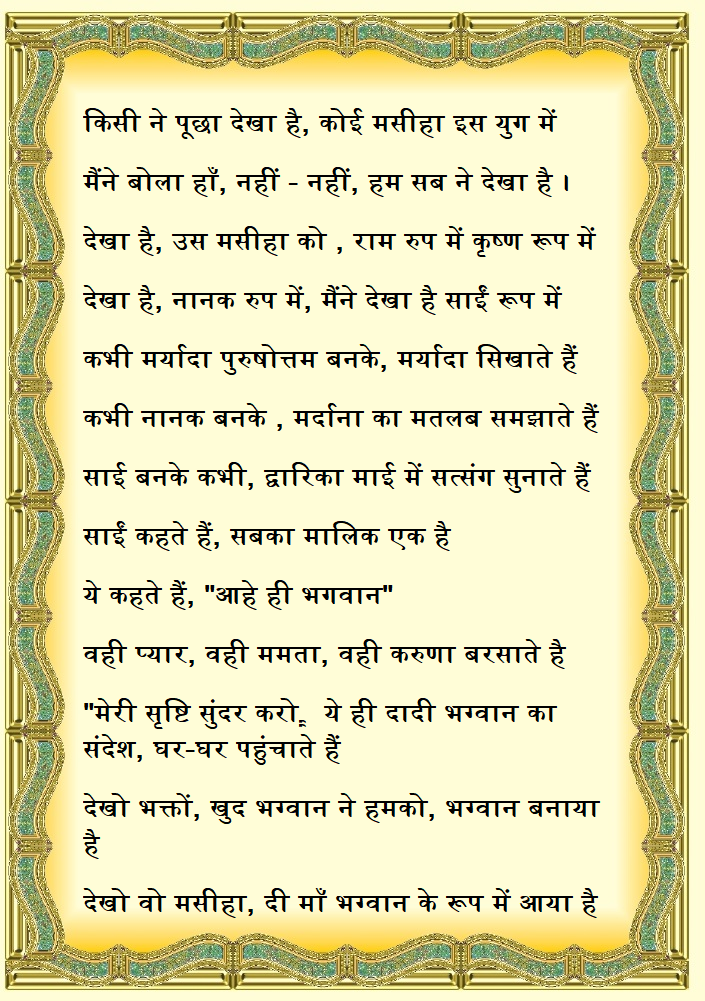 किसी ने पूछा देखा है, कोई मसीहा इस युग में
मैंने बोला हाँ, नहीं - नहीं, हम सब ने देखा है ।
देखा है, उस मसीहा को , राम रुप में कृष्ण रूप में
देखा है, नानक रुप में, मैंने देखा है साईं रूप में
कभी मर्यादा पुरुषोत्तम बनके, मर्यादा सिखाते हैं
कभी नानक बनके , मर्दाना का मतलब समझाते हैं
साई बनके कभी, द्वारिका माई में सत्संग सुनाते हैं
साईं कहते हैं, सबका मालिक एक है
ये कहते हैं, "आहे ही भगवान"
वही प्यार, वही ममता, वही करुणा बरसाते है
"मेरी सृष्टि सुंदर करो्, ये ही दादी भग्वान का
संदेश, घर-घर पहुंचाते हैं
देखो भक्तों, खुद भग्वान ने हमको, भग्वान बनाया
है
देखो वो मसीहा, दी माँ भग्वान के रूप में आया है